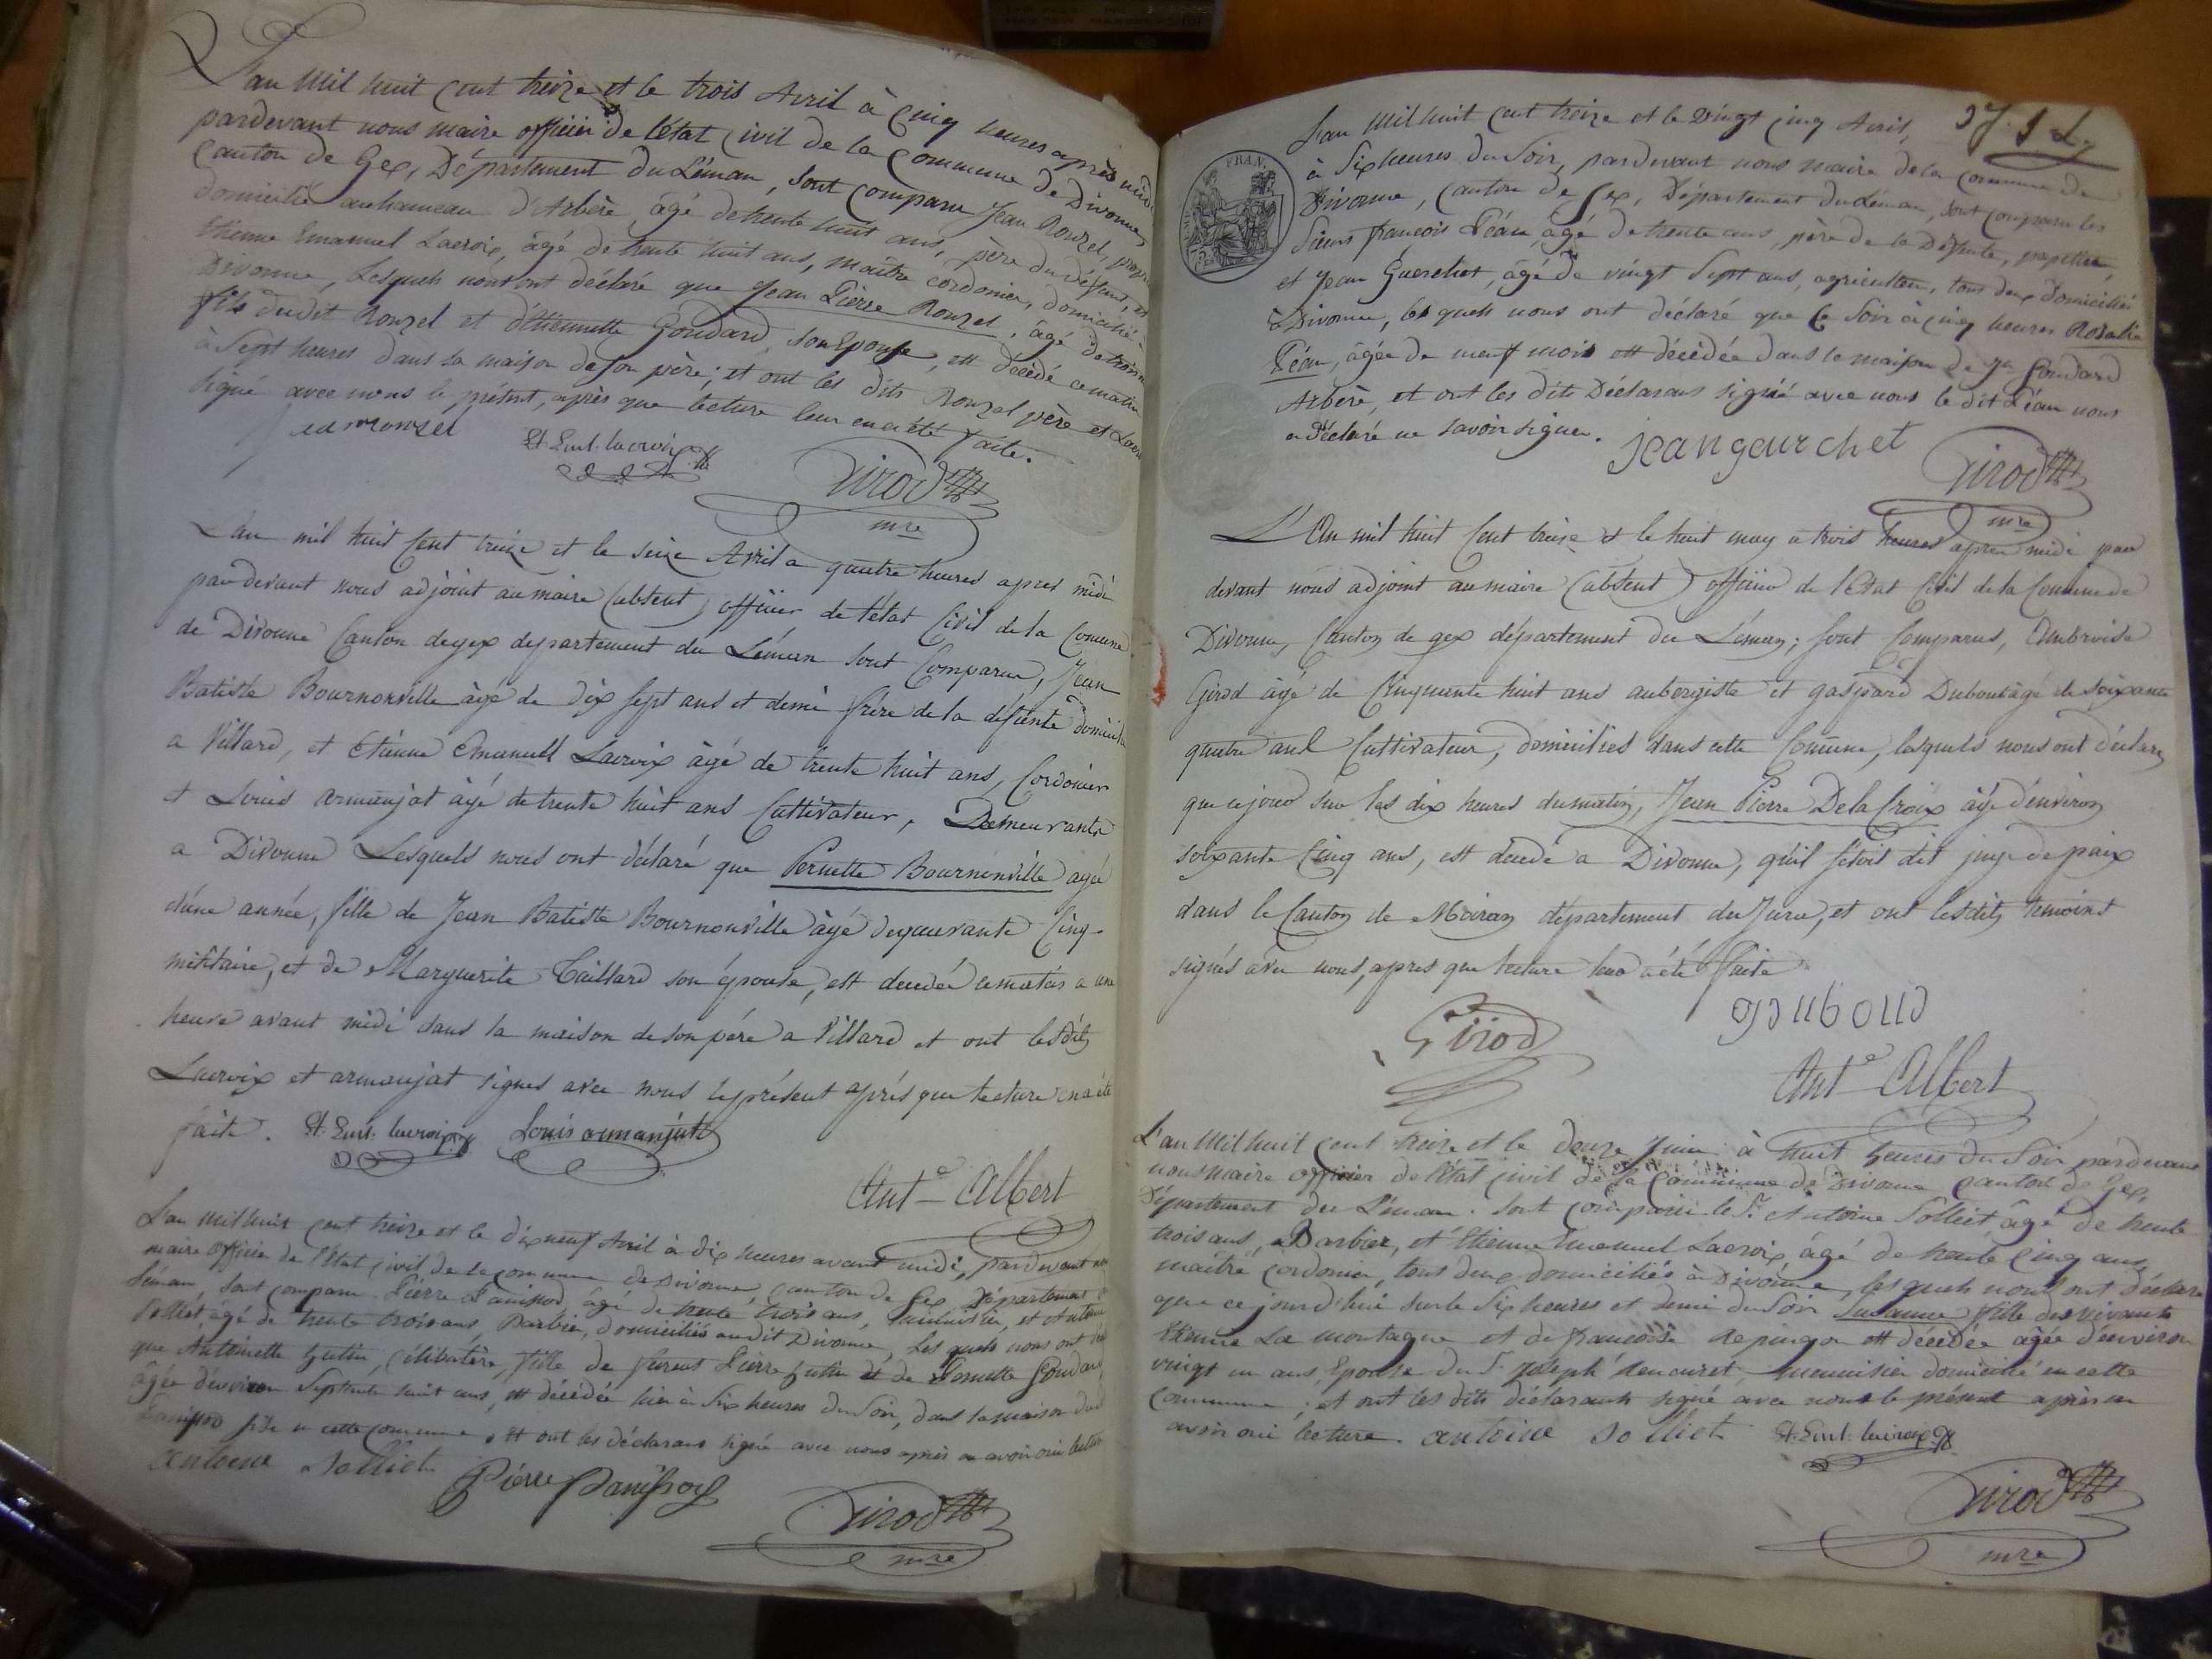 L'an Mil huit Cent treize et le trois Avril à Cinq heures après midi
pardevant nous maire officier de l'état Civil de la Commune de Divonne,
Canton de Gex, Département du Léman, sont comparu Jean Rouzel,
domicilié au hameau d'Arbère, âgé de trente huit ans, père du défunt, et
Etienne Emanuel Lacroix, âgé de trente huit ans, maître cordonier, domicilié à
Divonne, Lesquels nous ont déclaré que Jean Pierre Rouzel, âgé de trois
fils dudit Rouzel et d'Etiennette Goudard, son Epouse, est décédé ce matin
à Sept heures dans la maison de son père; et ont les dits Rouzel père et Lacroix
signé avec nous le présent, après que lecture leur en a été faite.
Et. Eml. lacroix
Girod
mre
L'an mil huit Cent treize et le seize Avril a quatre heures apres midi
par devant nous adjoint au maire (absent) officier de l'état Civil de la Comune
de Divonne Canton de gex departement du Léman sont Comparu, Jean
Batiste Bournonville âgé de dix sept ans et demi frère de la défunte domicilié
a Villard, et Etienne Emanuell Lacroix âgé de trente huit ans, Cordonier
et Louis armanjat âgé de trente huit ans Cultivateur, Demeurants
a Divonne Lesquels nous ont déclaré que Pernette Bournonville agée
d'une année, fille de Jean Batiste Bournonville âgé de quarante Cinq
militaire, et de Marguerite Taillard son épouse, est decedée ce matin a une
heure avant midi dans la maison de son père a Villard et ont lesdits
Lacroix et armanjat signés avec nous le présent après que lecture en a été
faite. Et. Eml. lacroix Louis armanjat
Ant.e Albert
L'an Mil huit cent treize et le dix neuf Avril à dix heures avant midi, pardevant nous
maire officier de l'état civil de la commune de Divonne, canton de Gex, Département du
Léman, sont comparu Pierre Panissod, âgé de trente trois ans, et Antoine
Solliet, âgé de trente trois ans, Barbier, domiciliés audit Divonne, Lesquels nous ont
que Antoinette célibataire, fille de Pierre et de Pernette Goudard
âgée d'environ Septante huit ans, est décédée hier à Six heures du Soir, dans la maison dudit
Panissod en cette commune, et ont les déclarans signé avec nous après en avoir oui lecture
antoine Solliet Pierre Panissod
Girod
mre
L'an Mil huit Cent treize et le vingt cinq Avril,
à Six heures du Soir, pardevant nous maire de la Commune de
Divonne, Canton de Gex, Département du Léman, sont comparu les
Sieurs François Péau, âgé de trente ans, père de la Défunte, papetier,
et Jean Guerchet, âgé de vingt Sept ans, agriculteur, tous deux domiciliés
à Divonne, lesquels nous ont déclaré que ce Soir à cinq heures Rosalie
Péau, âgée de neuf mois est décédée dans la maison de Goudard
Arbère, et ont les dits Déclarans signé avec nous le dit Péau nous
a déclaré ne savoir signer.
jean geurchet
Girod
mre
FRAN.
L'An mil huit Cent treize & le huit may a trois heures apres midi par
devant nous adjoint au maire (absent) officier de l'Etat Civil de la Commune de
Divonne, Canton de gex département du Léman; sont Comparus, Ambroise
Girod âgé de Cinquante huit ans aubergiste et gaspard Duboud âgé de soixante
quatre ans Cultivateur, domiciliés dans cette Comune, lesquels nous ont déclaré
que ce jour sur les dix heures du matin, Jean Pierre De la Croix âgé d'environ
soixante Cinq ans, est decedé a Divonne, qu'il s'étoit dit juge de paix
dans le Canton de Moiran département du Jura, et ont lesdits temoins
signés avec nous, apres que lecture leur a été faite
Girod
g duboud
Ant.e Albert
L'an Mil huit cent treize et le douze Juin à huit heures du Soir pardevant
nous maire officier de l'état civil de la Commune de Divonne canton de Gex,
Département du Léman. sont comparu le Sr. Antoine Solliet âgé de trente
trois ans, Barbier, et Etienne Emanuel Lacroix âgé de trente cinq ans
maître cordonier, tous deux domiciliés à Divonne, lesquels nous ont déclaré
que ce jourd'hui sur le Six heures et demi du Soir Susanne fille des vivants
Etienne La montagne et de françoise est décédée agée d'environ
vingt un ans, Epouse du Sr. Joseph menuisier domicilié en cette
commune; et ont les dits déclarants signé avec nous le présent après en
avoir oui lecture. antoine Solliet Et. Eml. lacroix
Girod
mre